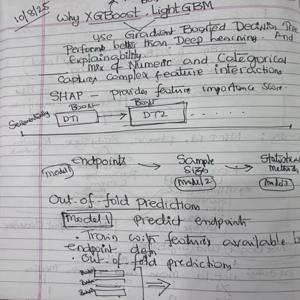 10/8/25
Why XGBoost, LightGBM
use Gradient Boosted Decision Tree
Performs better than Deep Learning. And
Explainability.
Mix of Numeric and Categorical
Captures complex feature interactions
SHAP - provides feature importance score
Sequentially
Boost
Boost
DT1
DT2
endpoints
Sample
Size
Statistical
Methods
Model 1
Model 2
Model 3
Out-of-fold prediction
Model 1
Predict endpoint
• Train with features available b
endpoint data
• Out-of fold predictions